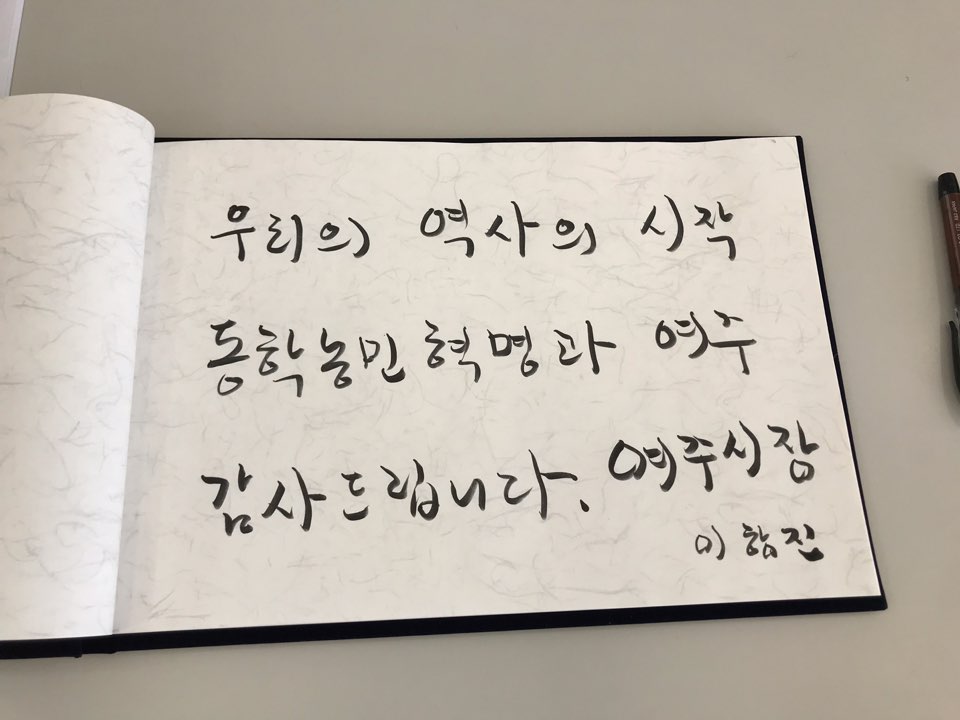 우리의 역사의 시작
동학농민혁명과 여주
감사드립니다. 여주시장
이항진